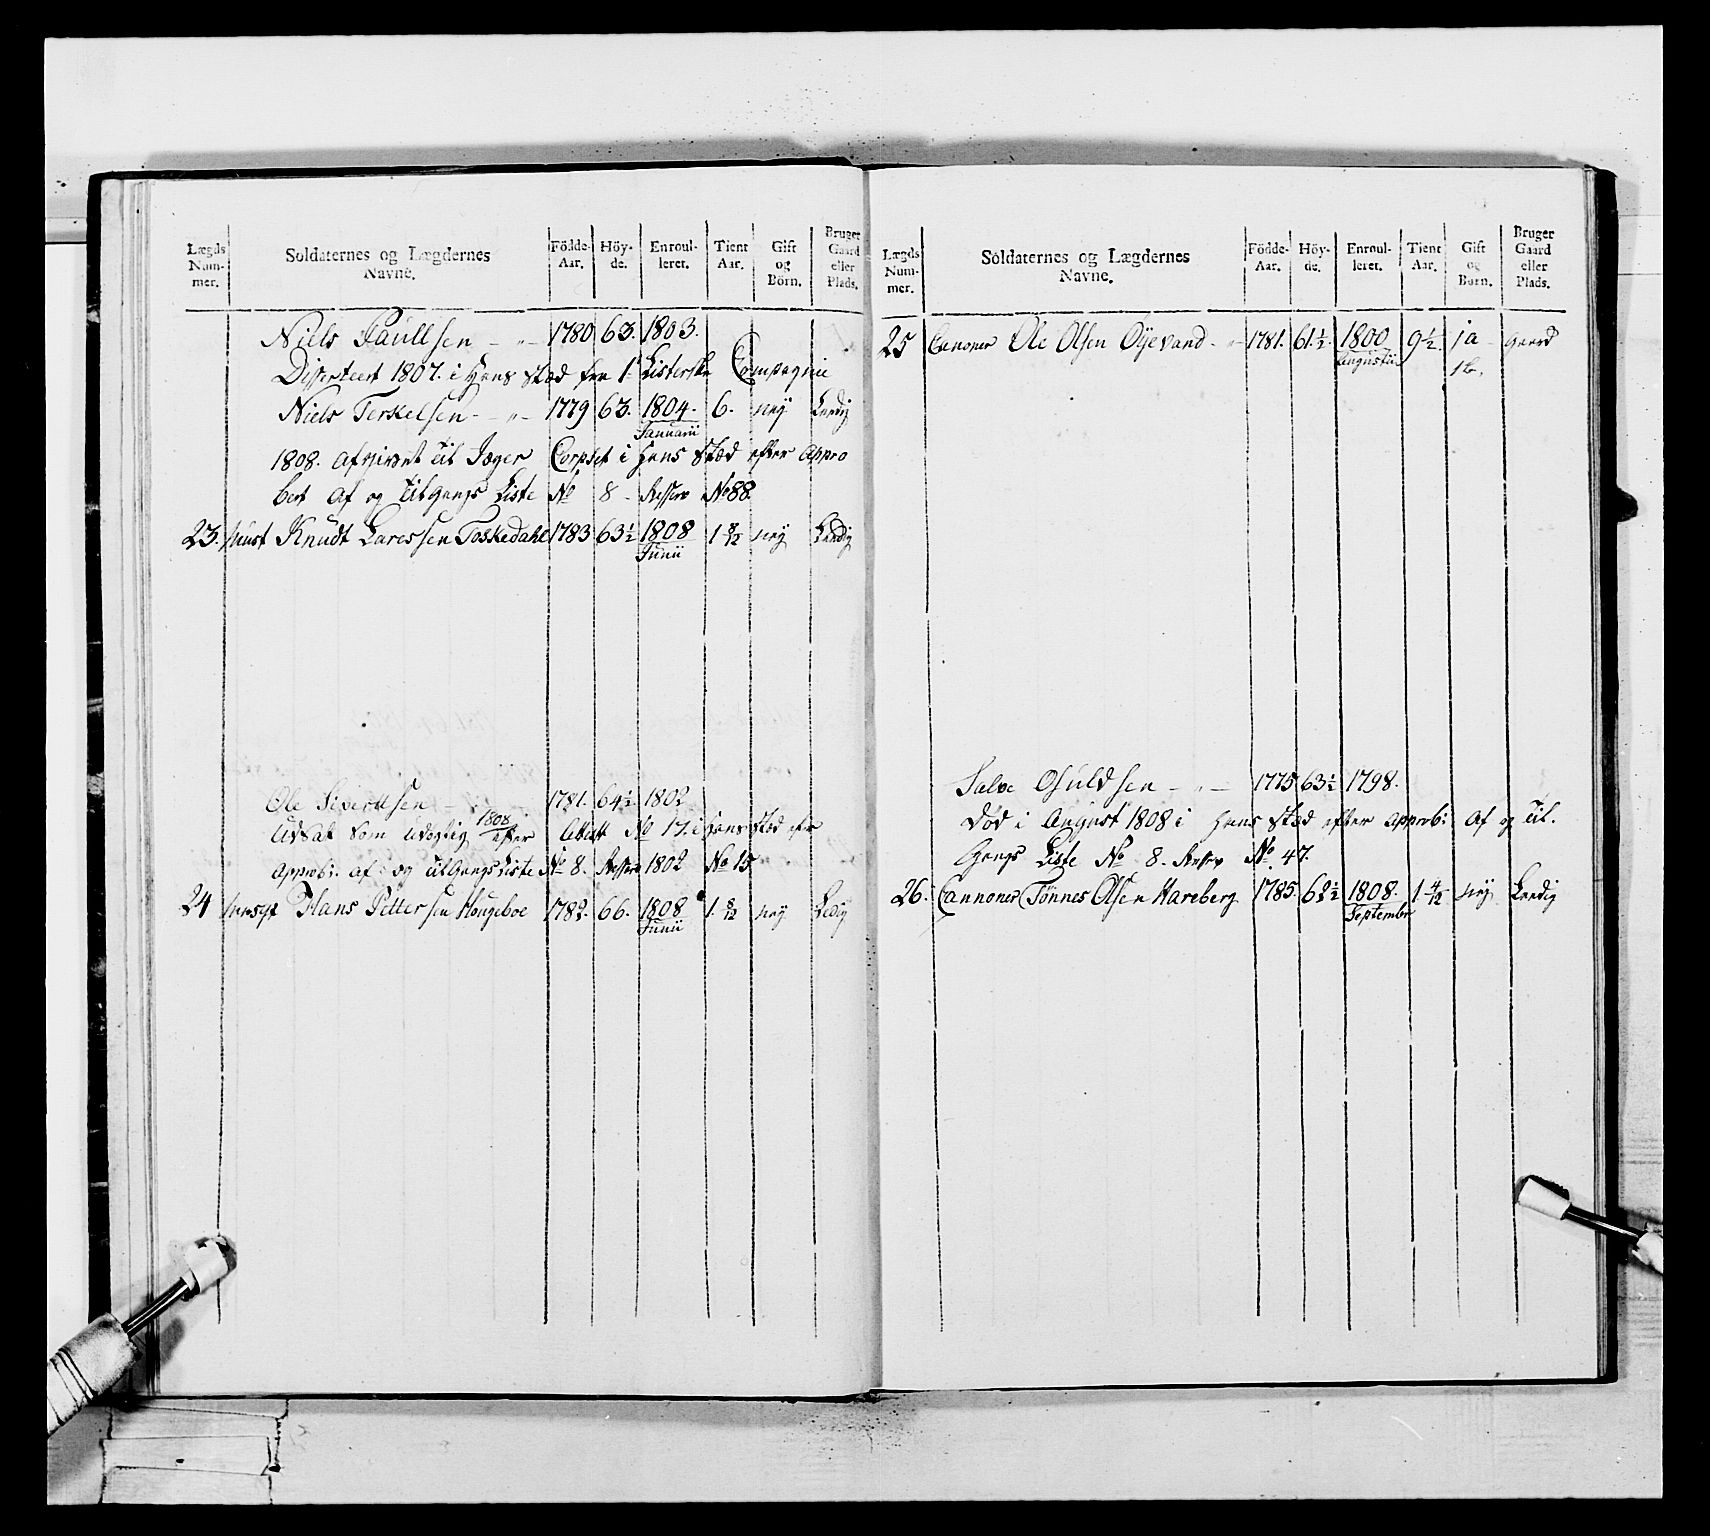 Lægds Num- mer. Soldaternes og Lægdernes Navne. Födde- Aar. Höy- de. Enroul- leret. Tient Aar. Gift og Börn. Bruger Gaard eller Plads.
Niels Paullsen - " - 1780 63. 1803.
Disserteert 1807. i Hans Stæd fra 1te Listerske Compagnie
Niels Terkelsen - " - 1779 63. 1804. 6. ney Leedig
Januarii
1808. afgivet til Jæger Corpset i Hans Stæd efter appro
bert Af og tilgangs Liste No 8 - Resserv No 88.
23. Knudt Laressen Toskedahl 1783 63½ 1808 1 8/12 ney Leedig
Junii
Ole Sivertsen - 1781. 64½ 1802
1808
Udsat som udygtig efter No 17. i Hans Stæd efr
approb: af- og tilgangs Liste No 8. Resserv 1802 No 15
24 Hans Pettersen Hougeboe 1782. 66. 1808 1. 8/12 ney Ledig
Junii
Lægds Num- mer. Soldaternes og Lægdernes Navne. Födde- Aar. Höy- de. Enroul- leret. Tient Aar. Gift og Börn. Bruger Gaard eller Plads.
25 Canoner Ole Olsen Öyevand - " - 1781. 61½ 1800 9½ ja Gaard
Augustii 1 b.
Salve Osuldsen - " - 1775 63½ 1798.
Död i August 1808 i Hans Stæd efter approb: Af og Til.
Gangs Liste No 8. Resserv No 47.
26. Cannoner Tönnes Olsen Hareberg 1785. 62½ 1808. 1 4/12 ney Leedig
Septembr